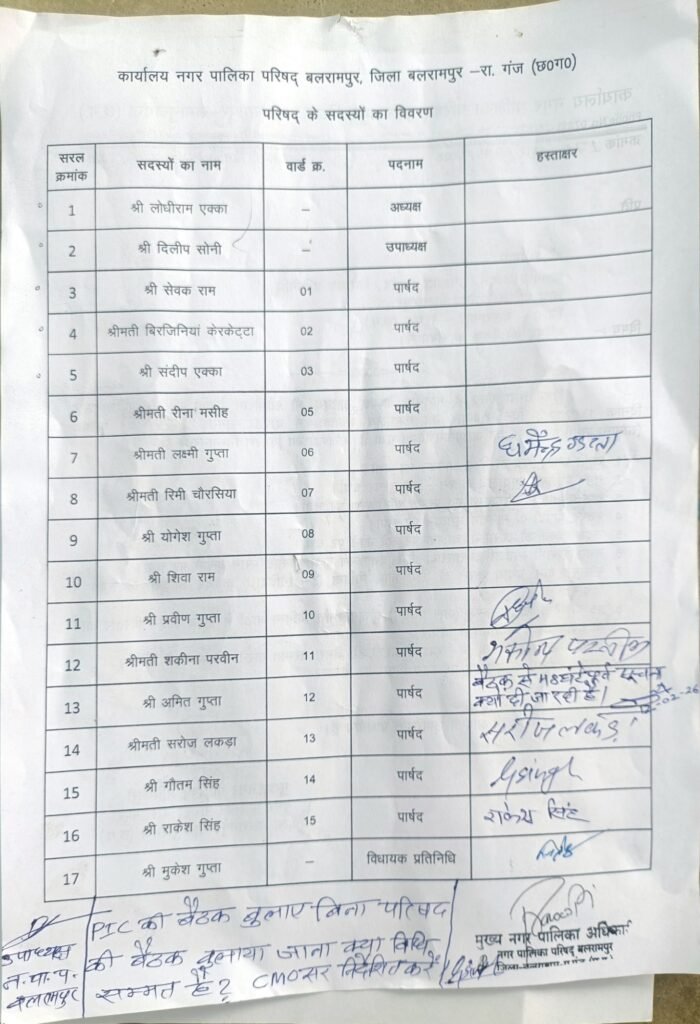 कार्यालय नगर पालिका परिषद् बलरामपुर, जिला बलरामपुर –रा. गंज (छ0ग0)
परिषद् के सदस्यों का विवरण
सरल क्रमांक सदस्यों का नाम वार्ड क्र. पदनाम हस्ताक्षर
1 श्री लोधीराम एक्का – अध्यक्ष
2 श्री दिलीप सोनी – उपाध्यक्ष
3 श्री सेवक राम 01 पार्षद
4 श्रीमती बिरजिनियां केरकेट्टा 02 पार्षद
5 श्री संदीप एक्का 03 पार्षद
6 श्रीमती रीना मसीह 05 पार्षद
7 श्रीमती लक्ष्मी गुप्ता 06 पार्षद
8 श्रीमती रिमी चौरसिया 07 पार्षद
9 श्री योगेश गुप्ता 08 पार्षद
10 श्री शिवा राम 09 पार्षद
11 श्री प्रवीण गुप्ता 10 पार्षद
12 श्रीमती शकीना परवीन 11 पार्षद
13 श्री अमित गुप्ता 12 पार्षद बैठक से 48 घंटे पूर्व सूचना
क्यों दी जा रही है।
14 श्रीमती सरोज लकड़ा 13 पार्षद सरोज लकड़ा
15 श्री गौतम सिंह 14 पार्षद Gsingh
16 श्री राकेश सिंह 15 पार्षद राकेश सिंह
17 श्री मुकेश गुप्ता – विधायक प्रतिनिधि
PIC की बैठक बुलाए बिना परिषद
की बैठक बुलाया जाना क्या विधि
सम्मत है? CMO सर निर्देशित करें
उपाध्यक्ष
न.पा.प.
बलरामपुर
मुख्य नगर पालिका अधिकारी
नगर पालिका परिषद् बलरामपुर